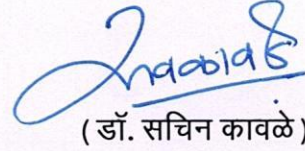 ( डॉ. सचिन कावळे )